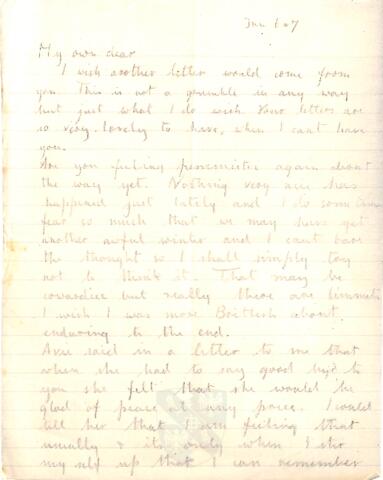 Jun 6 · 7
My own dear
I wish another letter would come from
you. This is not a grumble in any way
but just what I do wish. Your letters are
so very lovely to have, when I cant have
you.
Are you feeling pessimistic again about
the war yet. Nothing very nice has
happened just lately and I do some times
fear so much that we may have yet
another awful winter and I cant bear
the thought so I shall simply try
not to think it. That may be
cowardice but really there are limmits
I wish I was more British about
enduring to the end.
said in a letter to me that
when she had to say good bye to
you she felt that she would be
glad of peace at any price. I could
tell her that I am feeling that
usually & its only when I stir
my self up that I can remember